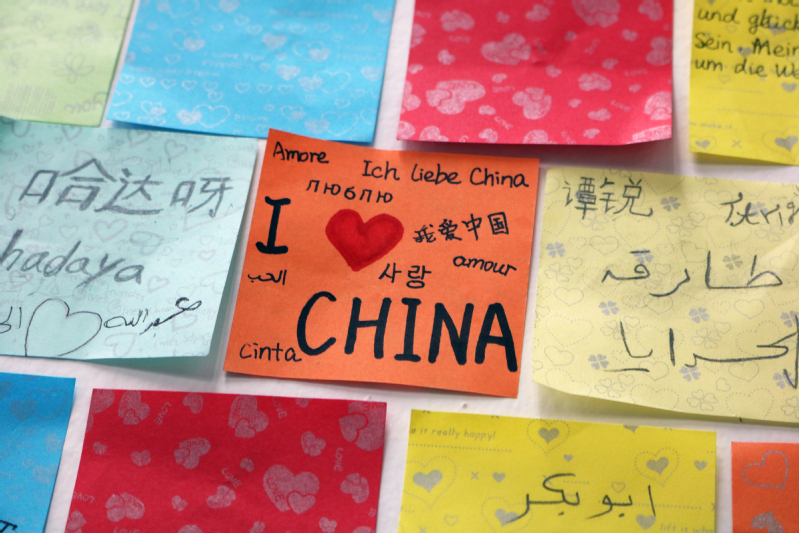 und glück
Sein. Mein
um die We
哈达呀
hadaya
عبدالله
Amore
Ich liebe China
люблю
I
我爱中国
الحب
사랑
amour
CHINA
Cinta
谭锐
طارقه
الحرايا
it really happy!
ابوبكر